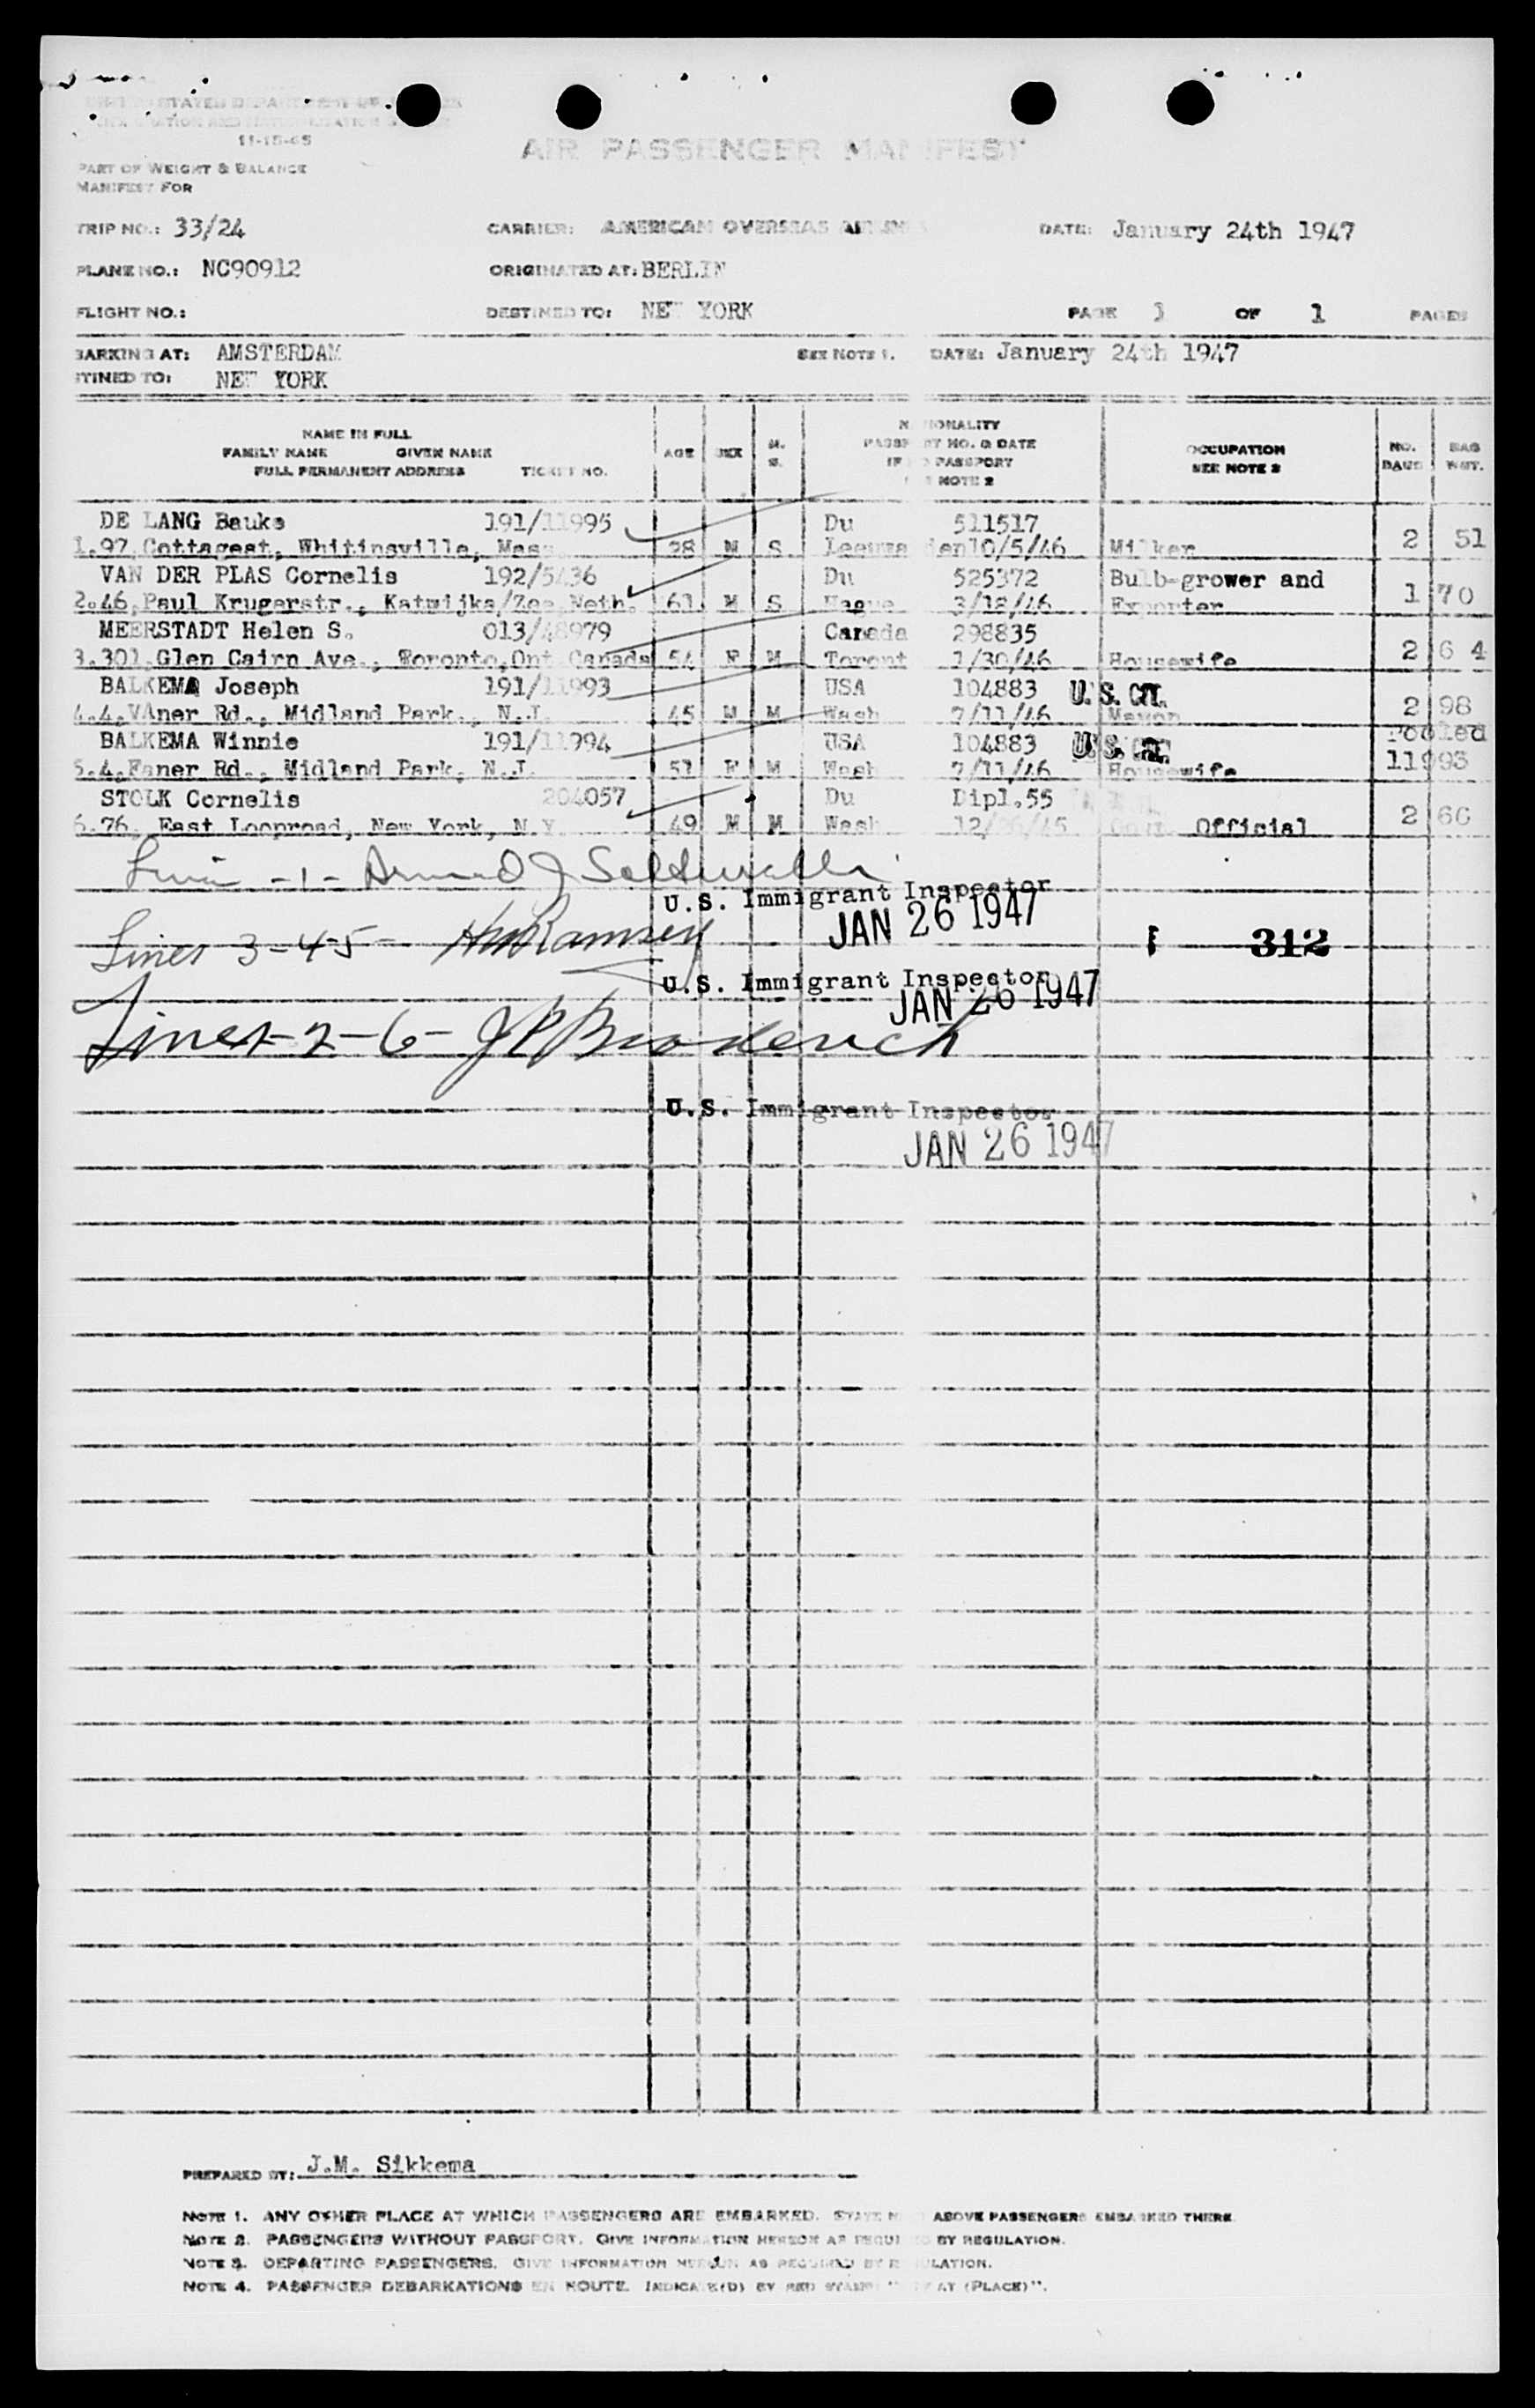 11-15-45
AIR PASSENGER MANIFEST
PART OF WEIGHT & BALANCE
MANIFEST FOR
TRIP NO.: 33/24 CARRIER: AMERICAN OVERSEAS DATE: January 24th 1947
PLANE NO.: NC90912 ORIGINATED AT: BERLIN
FLIGHT NO.: DESTINED TO: NEW YORK PAGE 1 OF 1 PAGES
BARKING AT: AMSTERDAM SEE NOTE 1. DATE: January 24th 1947
TINED TO: NEW YORK
NAME IN FULL NATIONALITY
FAMILY NAME GIVEN NAME AGE SEX M. PASSPORT NO. & DATE OCCUPATION NO. BAG
FULL PERMANENT ADDRESS TICKET NO. S. IF NO PASSPORT SEE NOTE 3 BAGS WGT.
NOTE 2
DE LANG Bauke 191/11995 Du 511517
1.97,Cottagest, Whitinsville, Mass 28 M S 10/5/46 Milker 2 51
VAN DER PLAS Cornelis 192/5436 Du 525372 Bulb-grower and
2.46,Paul Krugerstr., Katwijka/Zee Neth. 61 M S Hague 3/18/46 Exporter 1 70
MEERSTADT Helen S. 013/48979 Canada 298835
3.301,Glen Cairn Ave., Toronto,Ont Canada 54 F M Toront 1/30/46 Housewife 2 64
BALKEMA Joseph 191/11993 USA 104883 U.S. CIT.
4.4,VAner Rd., Midland Park., N.J. 45 M M Wash 7/11/46 2 98
BALKEMA Winnie 191/11994 USA 104883 U.S. CIT. Pooled
5.4,Faner Rd., Midland Park, N.J. 51 F M Wash 7/11/46 Housewife 11993
STOLK Cornelis 204057 Du Dipl.55
6.76, East Looproad, New York, N.Y. 49 M M Wash 12/ /45 Govt. Official 2 66
- 1 -
U.S. Immigrant Inspector
JAN 26 1947
Lines 3-4-5- Ramsey 312
U.S. Immigrant Inspector
JAN 26 1947
Lines 2-6- JP Broderick
U.S. Immigrant Inspector
JAN 26 1947
PREPARED BY: J.M. Sikkema
NOTE 1. ANY OTHER PLACE AT WHICH PASSENGERS ARE EMBARKED. STATE ABOVE PASSENGERS EMBARKED THERE.
NOTE 2. PASSENGERS WITHOUT PASSPORT. GIVE INFORMATION HEREON AS REQUIRED BY REGULATION.
NOTE 3. DEPARTING PASSENGERS. GIVE INFORMATION HEREON AS REQUIRED BY REGULATION.
NOTE 4. PASSENGER DEBARKATIONS EN ROUTE. INDICATE(D) BY RED STAMP " AT (PLACE)".